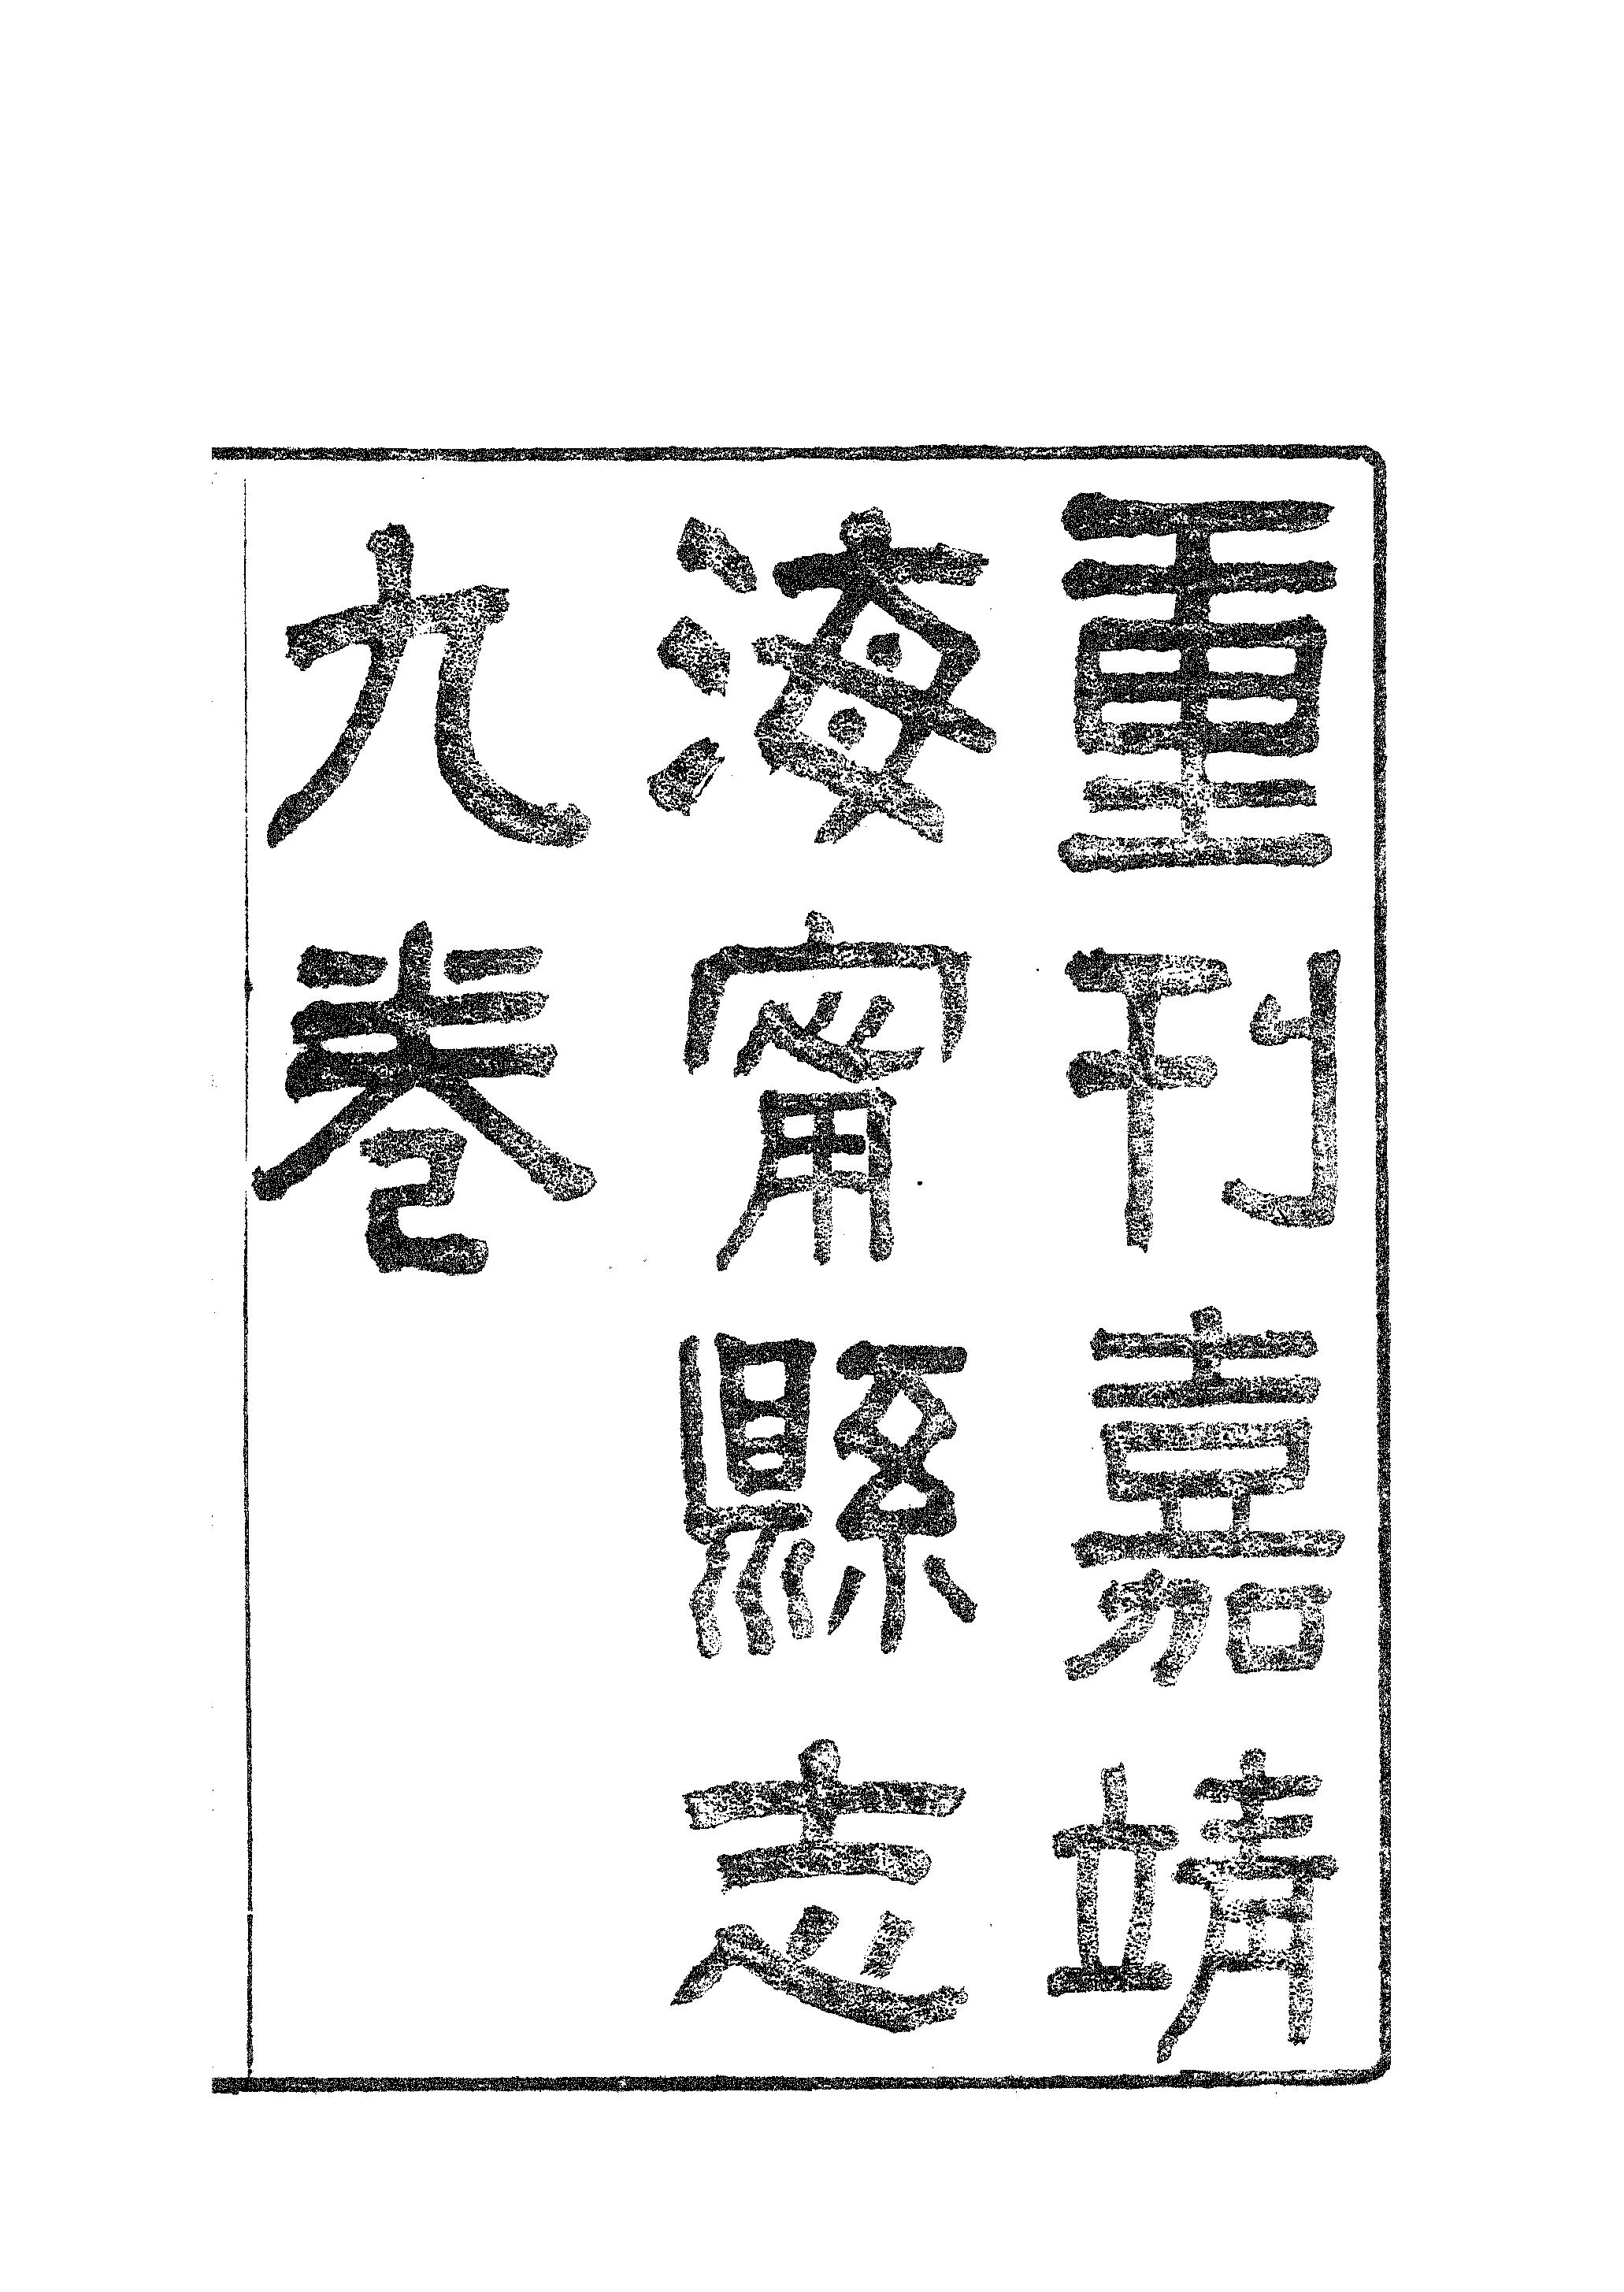 重刊嘉靖
海甯縣志
九卷